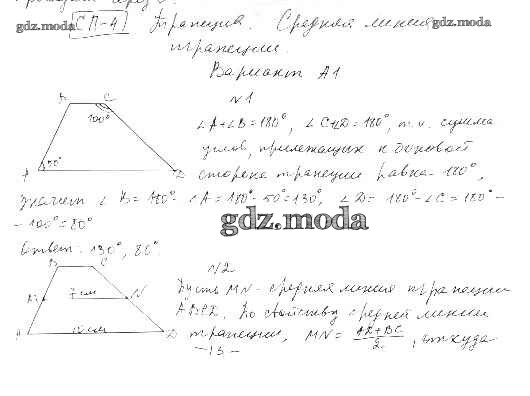 СП-4 Трапеция. Средняя линия
gdz.moda
gdz.moda
трапеции.
Вариант А1
№1
B C
100°
50°
A D
∠A+∠B=180°, ∠C+∠D=180°, т.к. сумма
углов, прилежащих к боковой
стороне трапеции равна 180°,
значит ∠B=180°-∠A=180°-50°=130°, ∠D=180°-∠C=180°-
-100°=80°
gdz.moda
Ответ: 130°, 80°.
№2
B C
M 7 см N
A D
Пусть MN-средняя линия трапеции
ABCD. По свойству средней линии
трапеции, MN= AD+BC/2, откуда
-13-